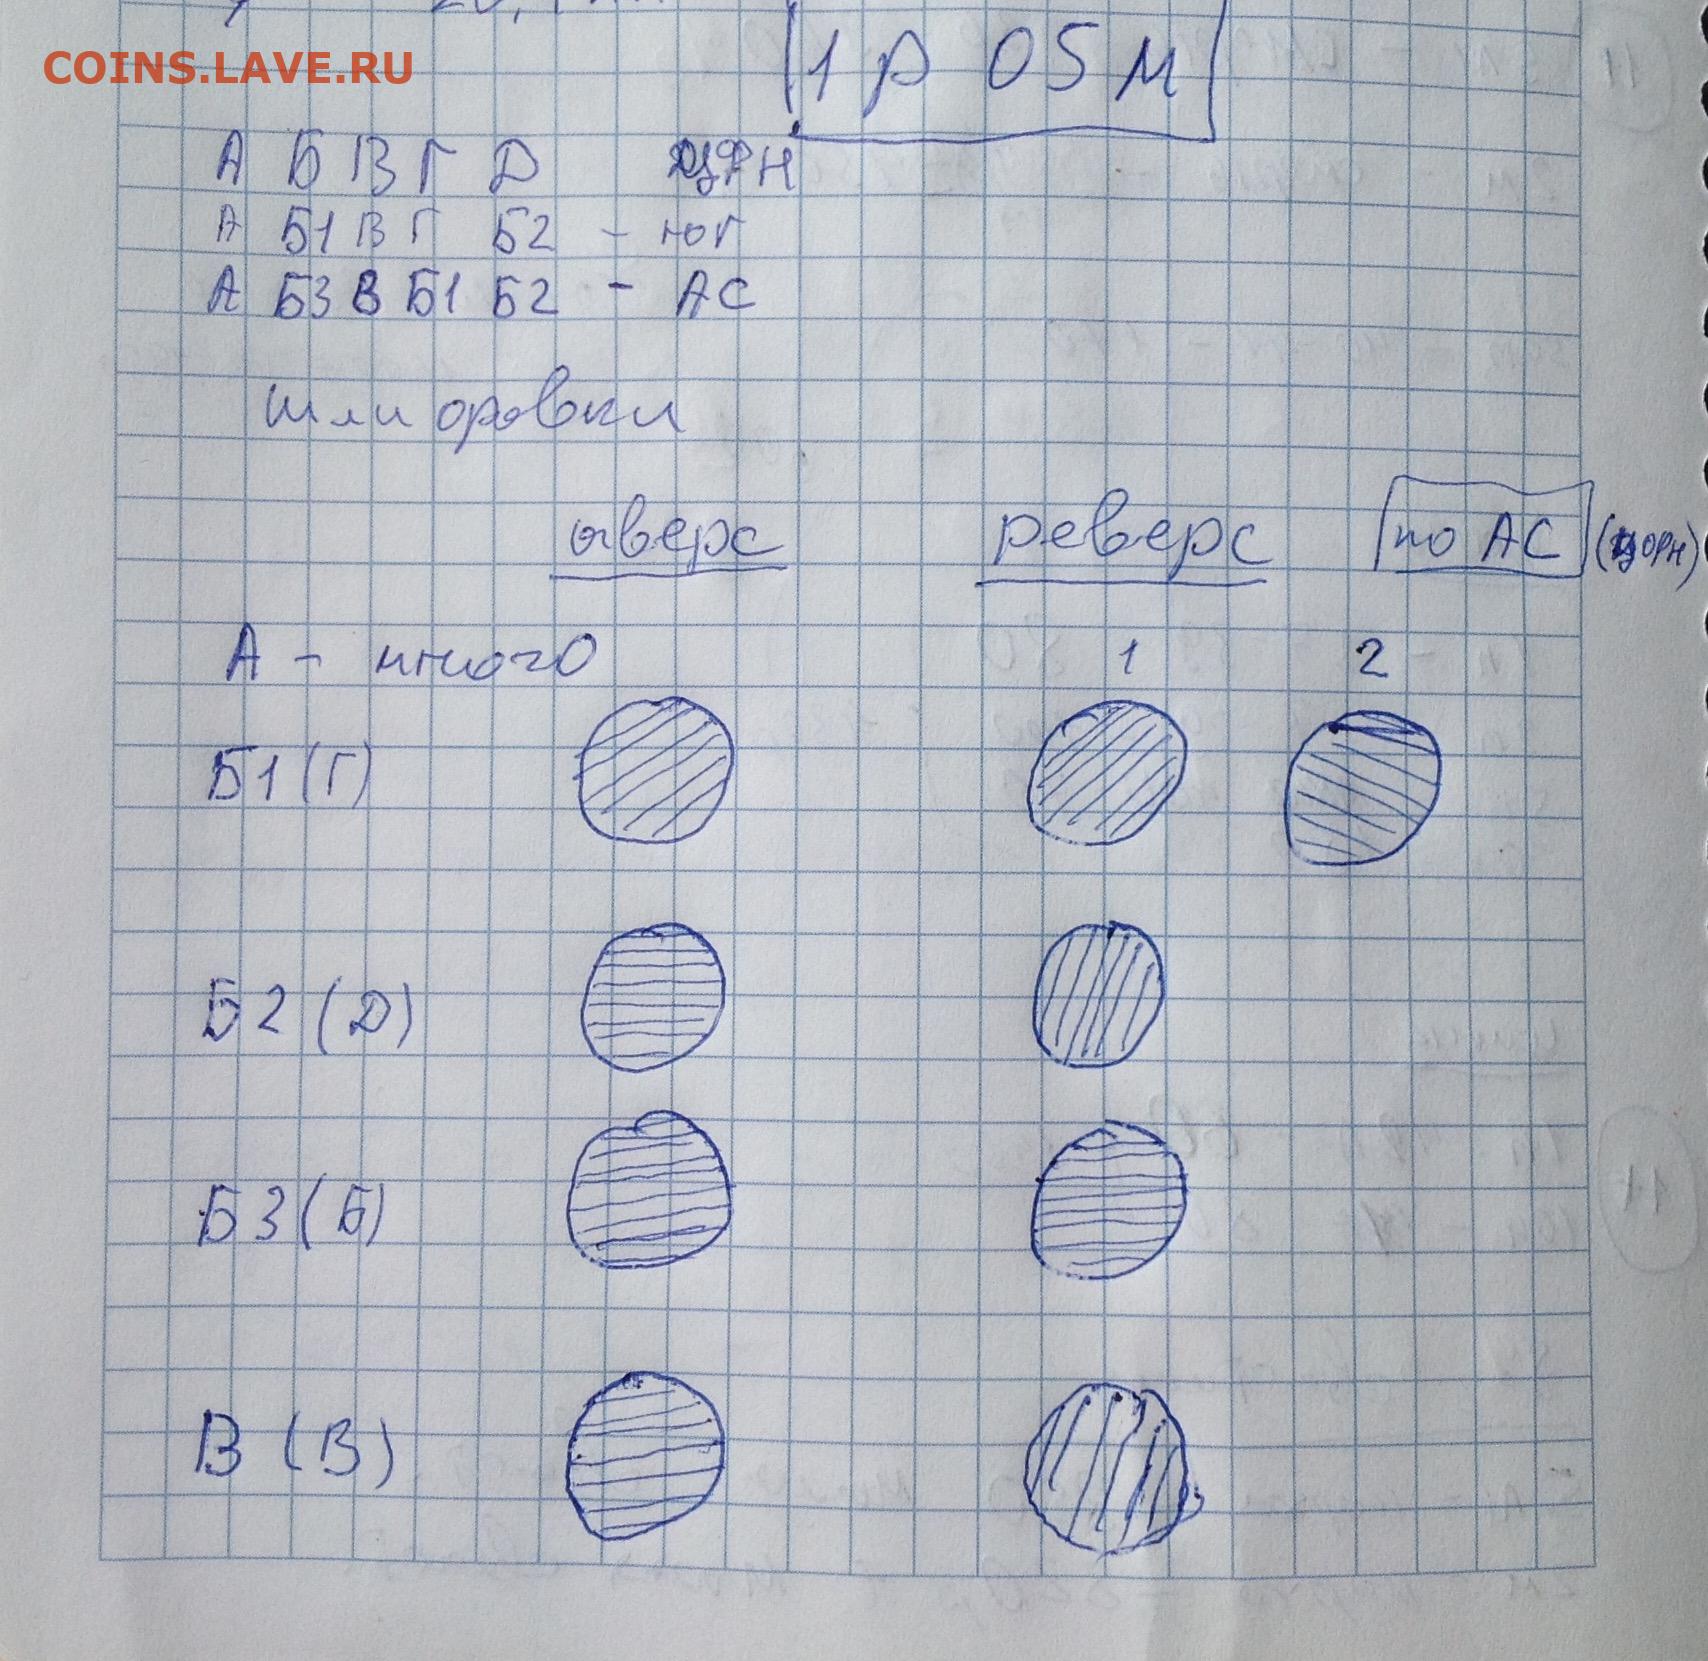 COINS.LAVE.RU
1 р 05 М
А Б В Г Д ЦФРН
А Б1 В Г Б2 - ЮГ
А Б3 В Б1 Б2 - АС
шлифовки
аверс реверс по АС
А - много 1 2
Б1 (Г)
Б2 (Д)
Б3 (Б)
В (В)